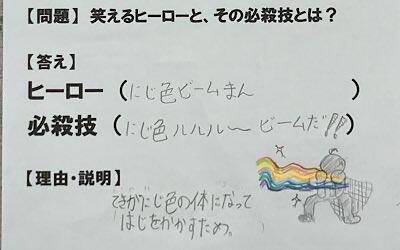 【問題】笑えるヒーローと、その必殺技とは?
【答え】
ヒーロー(にじ色ビームまん)
必殺技(にじ色ルルル〜ビームだ!!)
【理由・説明】
てきがにじ色の体になって
はじをかかすため。